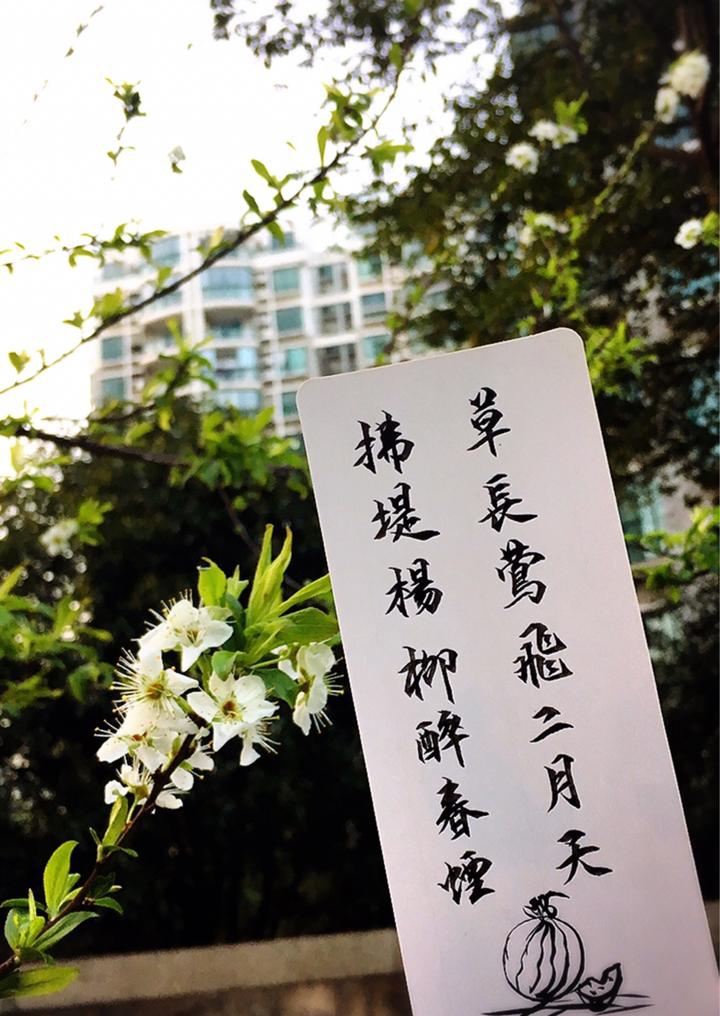 草長鶯飛二月天
拂堤楊柳醉春煙